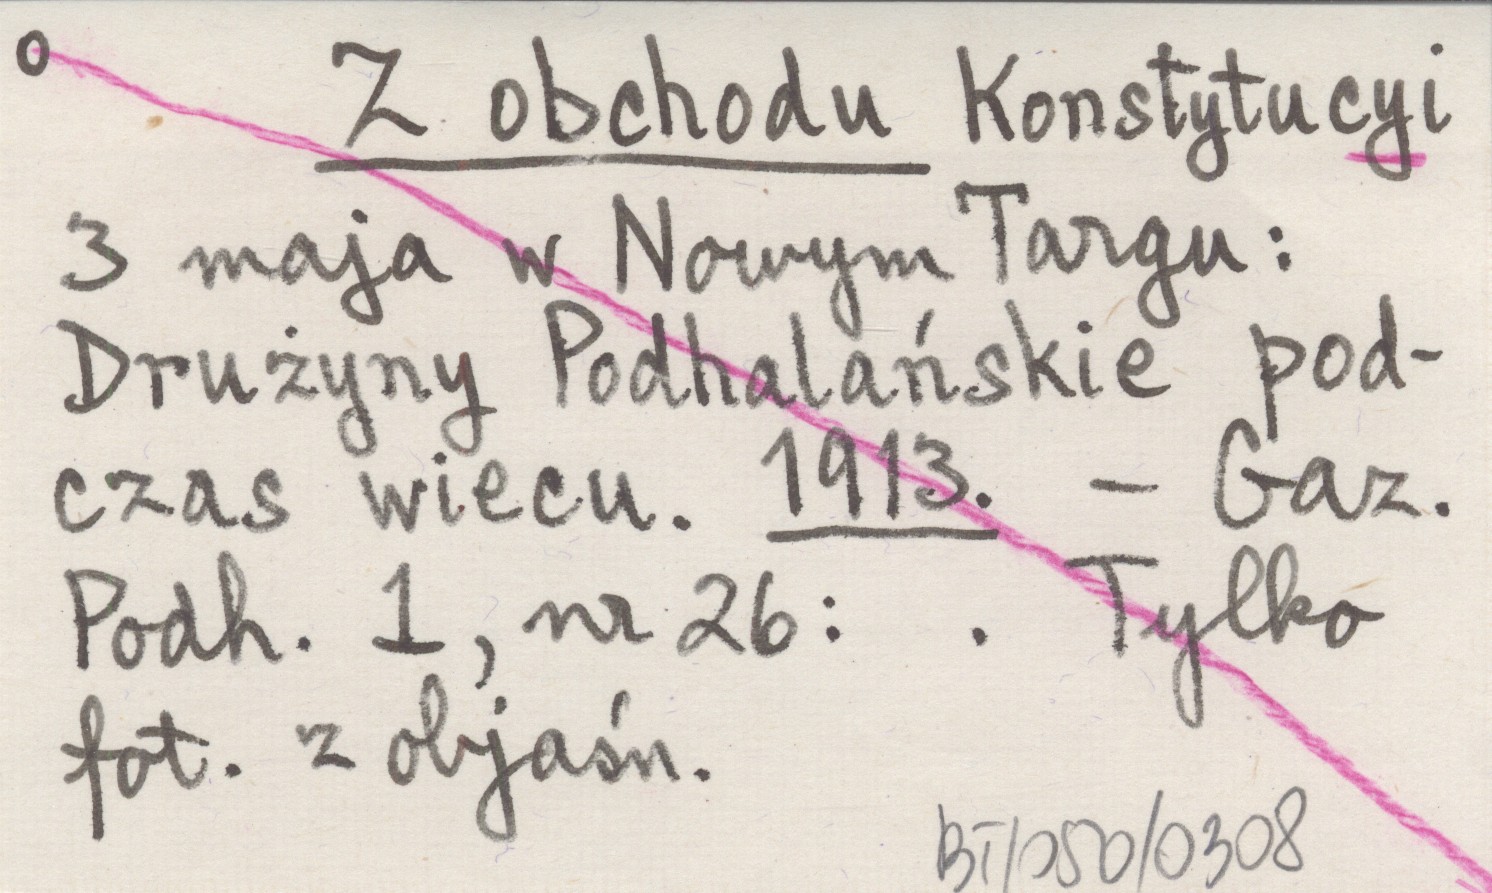 o Z obchodu Konstytucyi
3 maja w Nowym Targu:
Drużyny Podhalańskie pod-
czas wiecu. 1913. - Gaz.
Podh. 1, nr 26: . Tylko
fot. z objaśn.
BT/050/0308